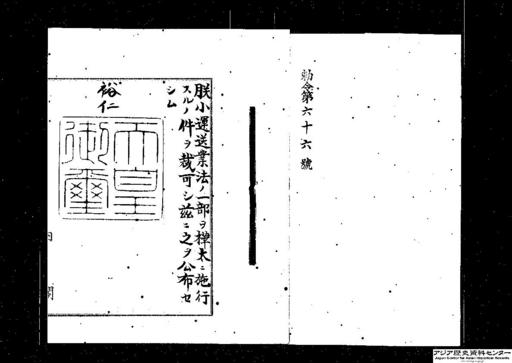 勅令第六十六號
朕小運送業法ノ一部ヲ樺太ニ施行
スルノ件ヲ裁可シ茲ニ之ヲ公布セ
シム
裕仁
天皇御璽
内閣
アジア歴史資料センター
Japan Center for Asian Historical Records